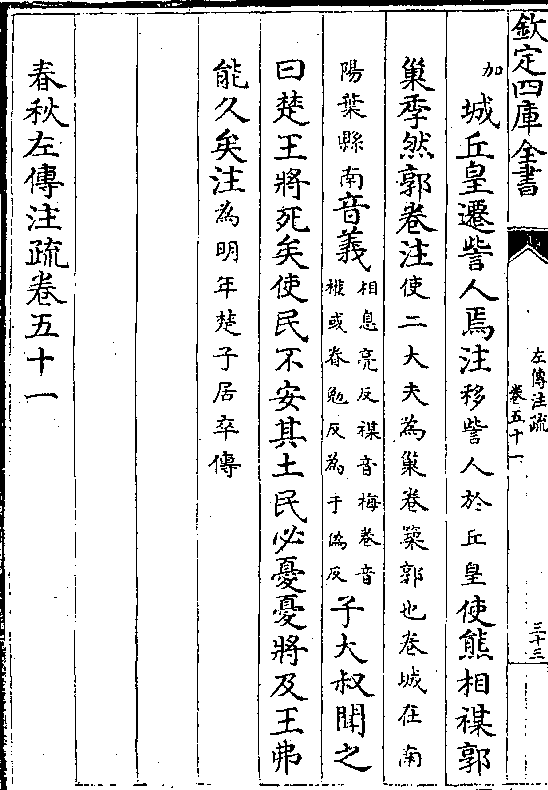 欽定四庫全書
左傳注疏
卷五十一
三十三
加城丘皇遷訾人焉注移訾人於丘皇使熊相禖郭
巢季然郭卷注使二大夫為巢卷築郭也卷城在南
陽葉縣南音義相息亮反禖音梅卷音權或眷勉反為于偽反子大叔聞之
曰楚王將死矣使民不安其土民必憂憂將及王弗
能久矣注為明年楚子居卒傳
春秋左傳注疏卷五十一